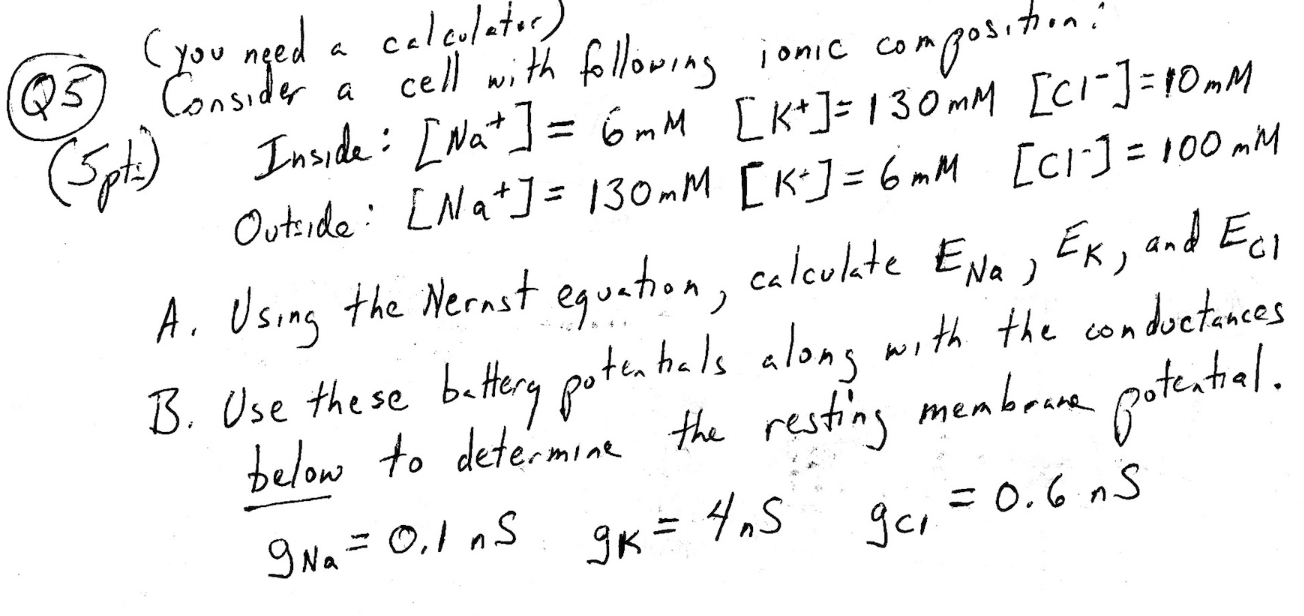 (you need a calculator)
Q5 Consider a cell with following ionic composition:
(5pts) Inside: [Na⁺] = 6 mM [K⁺] = 130 mM [Cl⁻] = 10 mM
Outside: [Na⁺] = 130 mM [K⁺] = 6 mM [Cl⁻] = 100 mM
A. Using the Nernst equation, calculate E_Na, E_K, and E_Cl
B. Use these battery potentials along with the conductances
below to determine the resting membrane potential.
g_Na = 0.1 nS g_K = 4 nS g_Cl = 0.6 nS